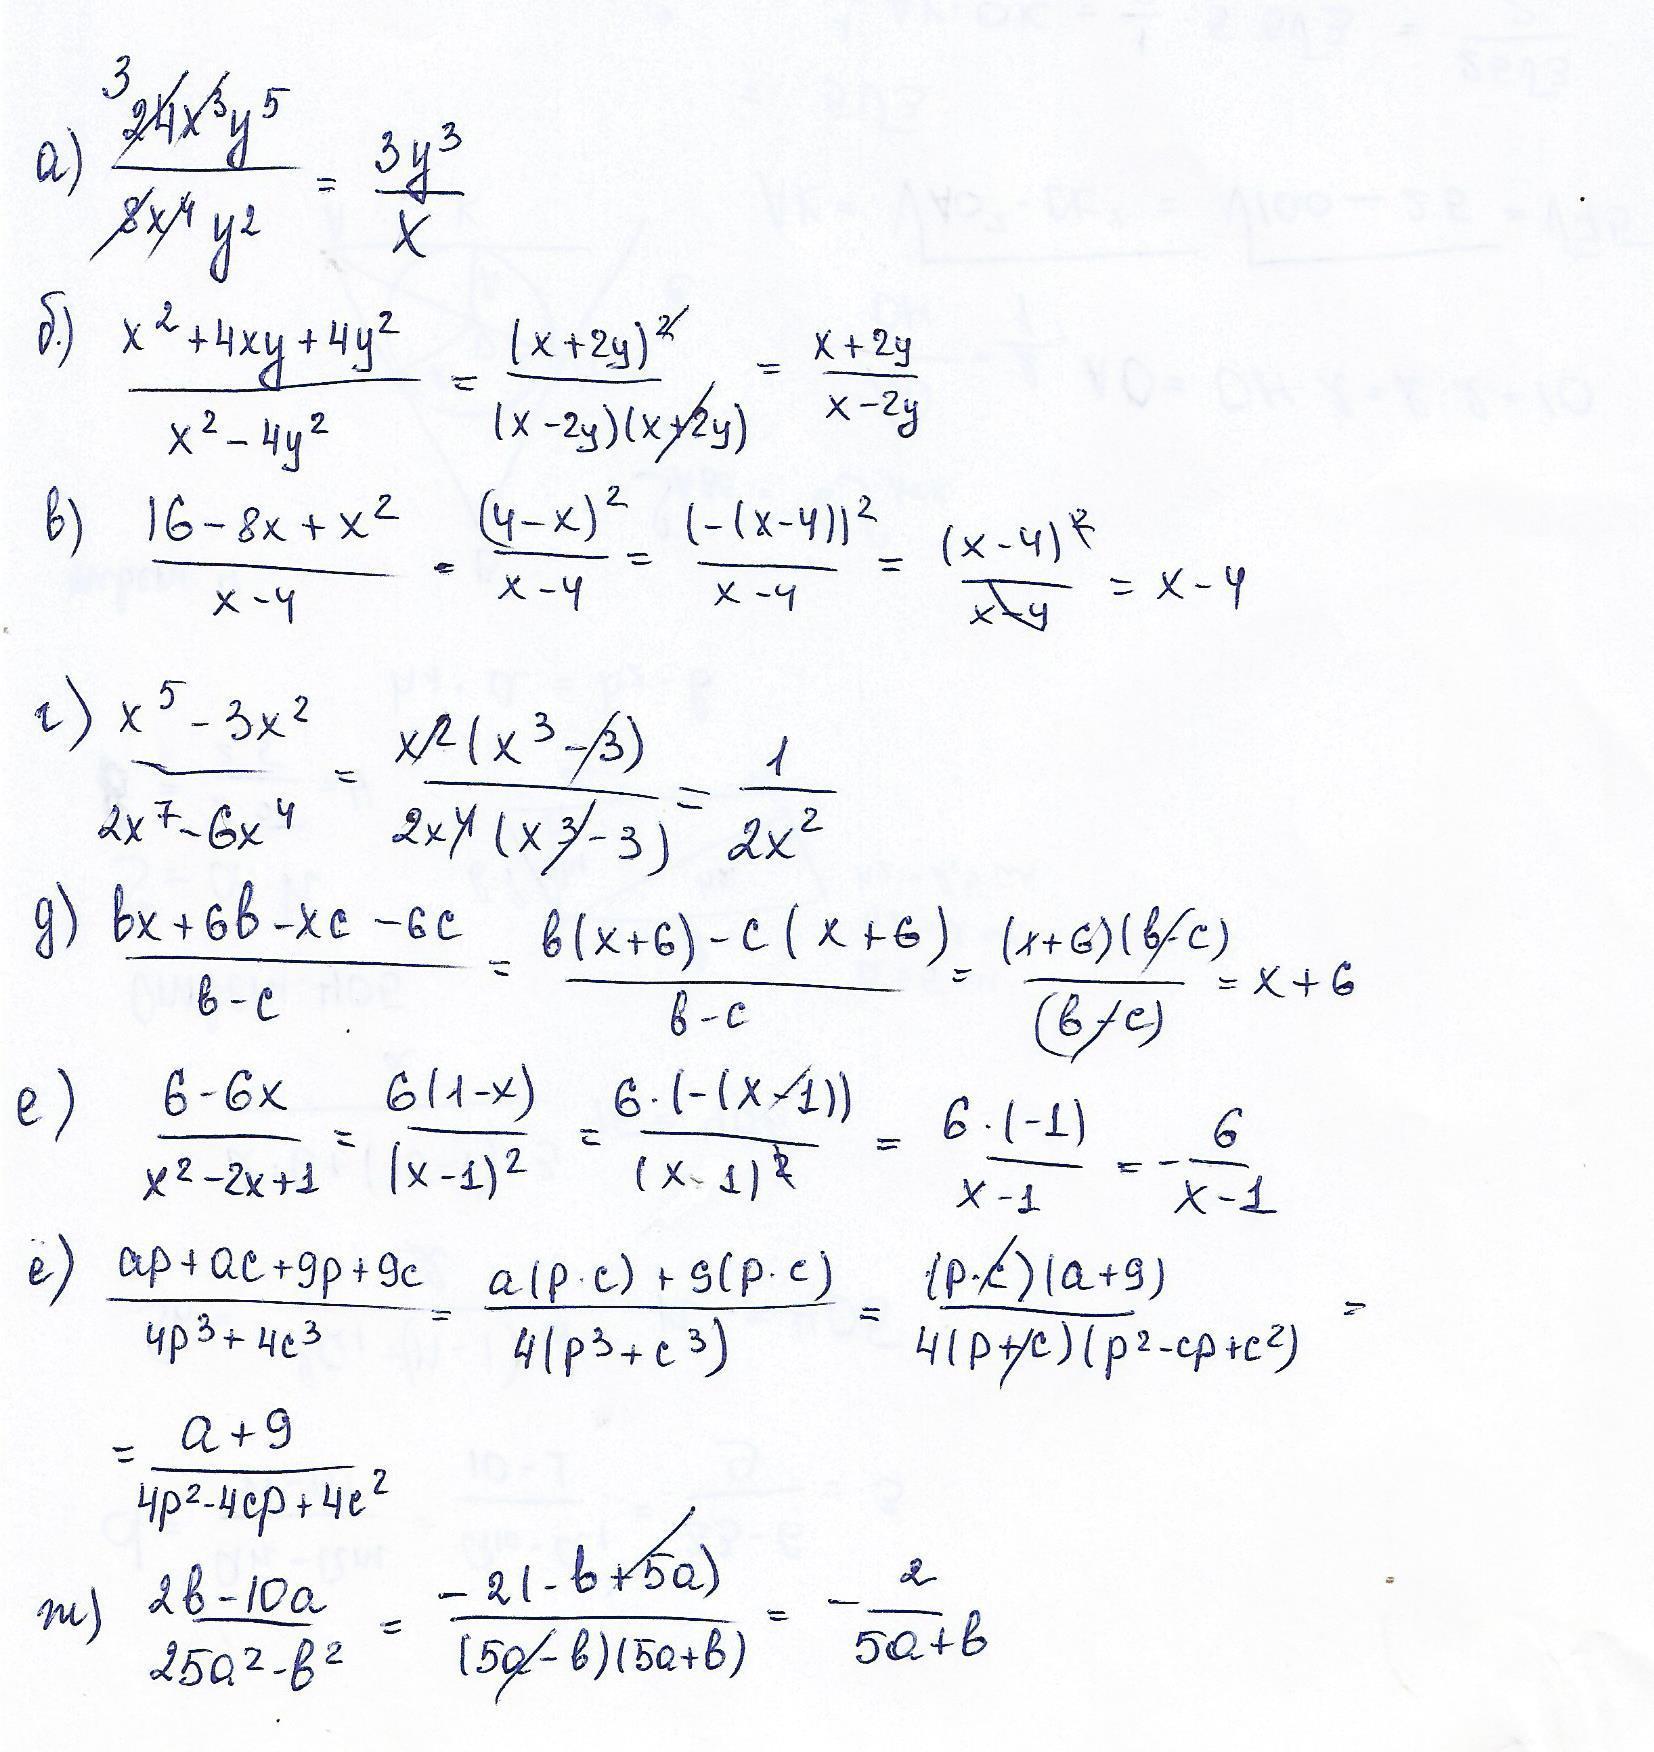 а) 24x³y⁵ / 8x⁴y² = 3y³ / x
б) x² + 4xy + 4y² / x² - 4y² = (x + 2y)² / (x - 2y)(x + 2y) = x + 2y / x - 2y
в) 16 - 8x + x² / x - 4 = (4 - x)² / x - 4 = (-(x - 4))² / x - 4 = (x - 4)² / x - 4 = x - 4
г) x⁵ - 3x² / 2x⁷ - 6x⁴ = x²(x³ - 3) / 2x⁴(x³ - 3) = 1 / 2x²
д) вx + 6в - xc - 6c / в - c = в(x + 6) - c(x + 6) / в - c = (x + 6)(в - c) / (в - c) = x + 6
е) 6 - 6x / x² - 2x + 1 = 6(1 - x) / (x - 1)² = 6·(-(x - 1)) / (x - 1)² = 6·(-1) / x - 1 = - 6 / x - 1
ё) ap + ac + 9p + 9c / 4p³ + 4c³ = a(p·c) + 9(p·c) / 4(p³ + c³) = (p·c)(a + 9) / 4(p + c)(p² - cp + c²) =
= a + 9 / 4p² - 4cp + 4c²
ж) 2в - 10a / 25a² - в² = -2(-в + 5a) / (5a - в)(5a + в) = - 2 / 5a + в